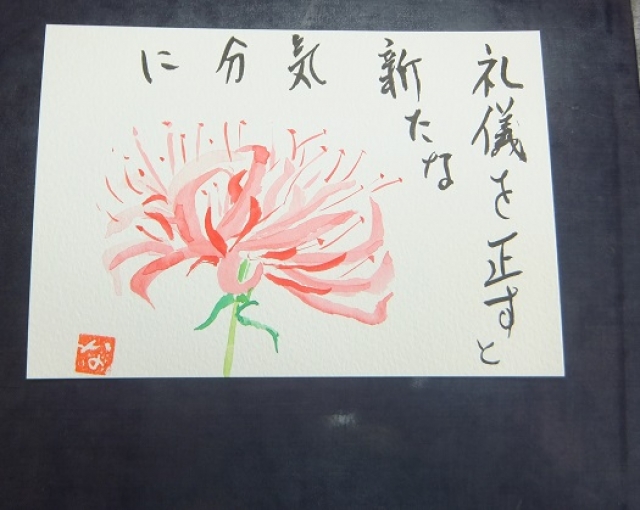 礼儀を正すと
新たな
気
分
に
いな